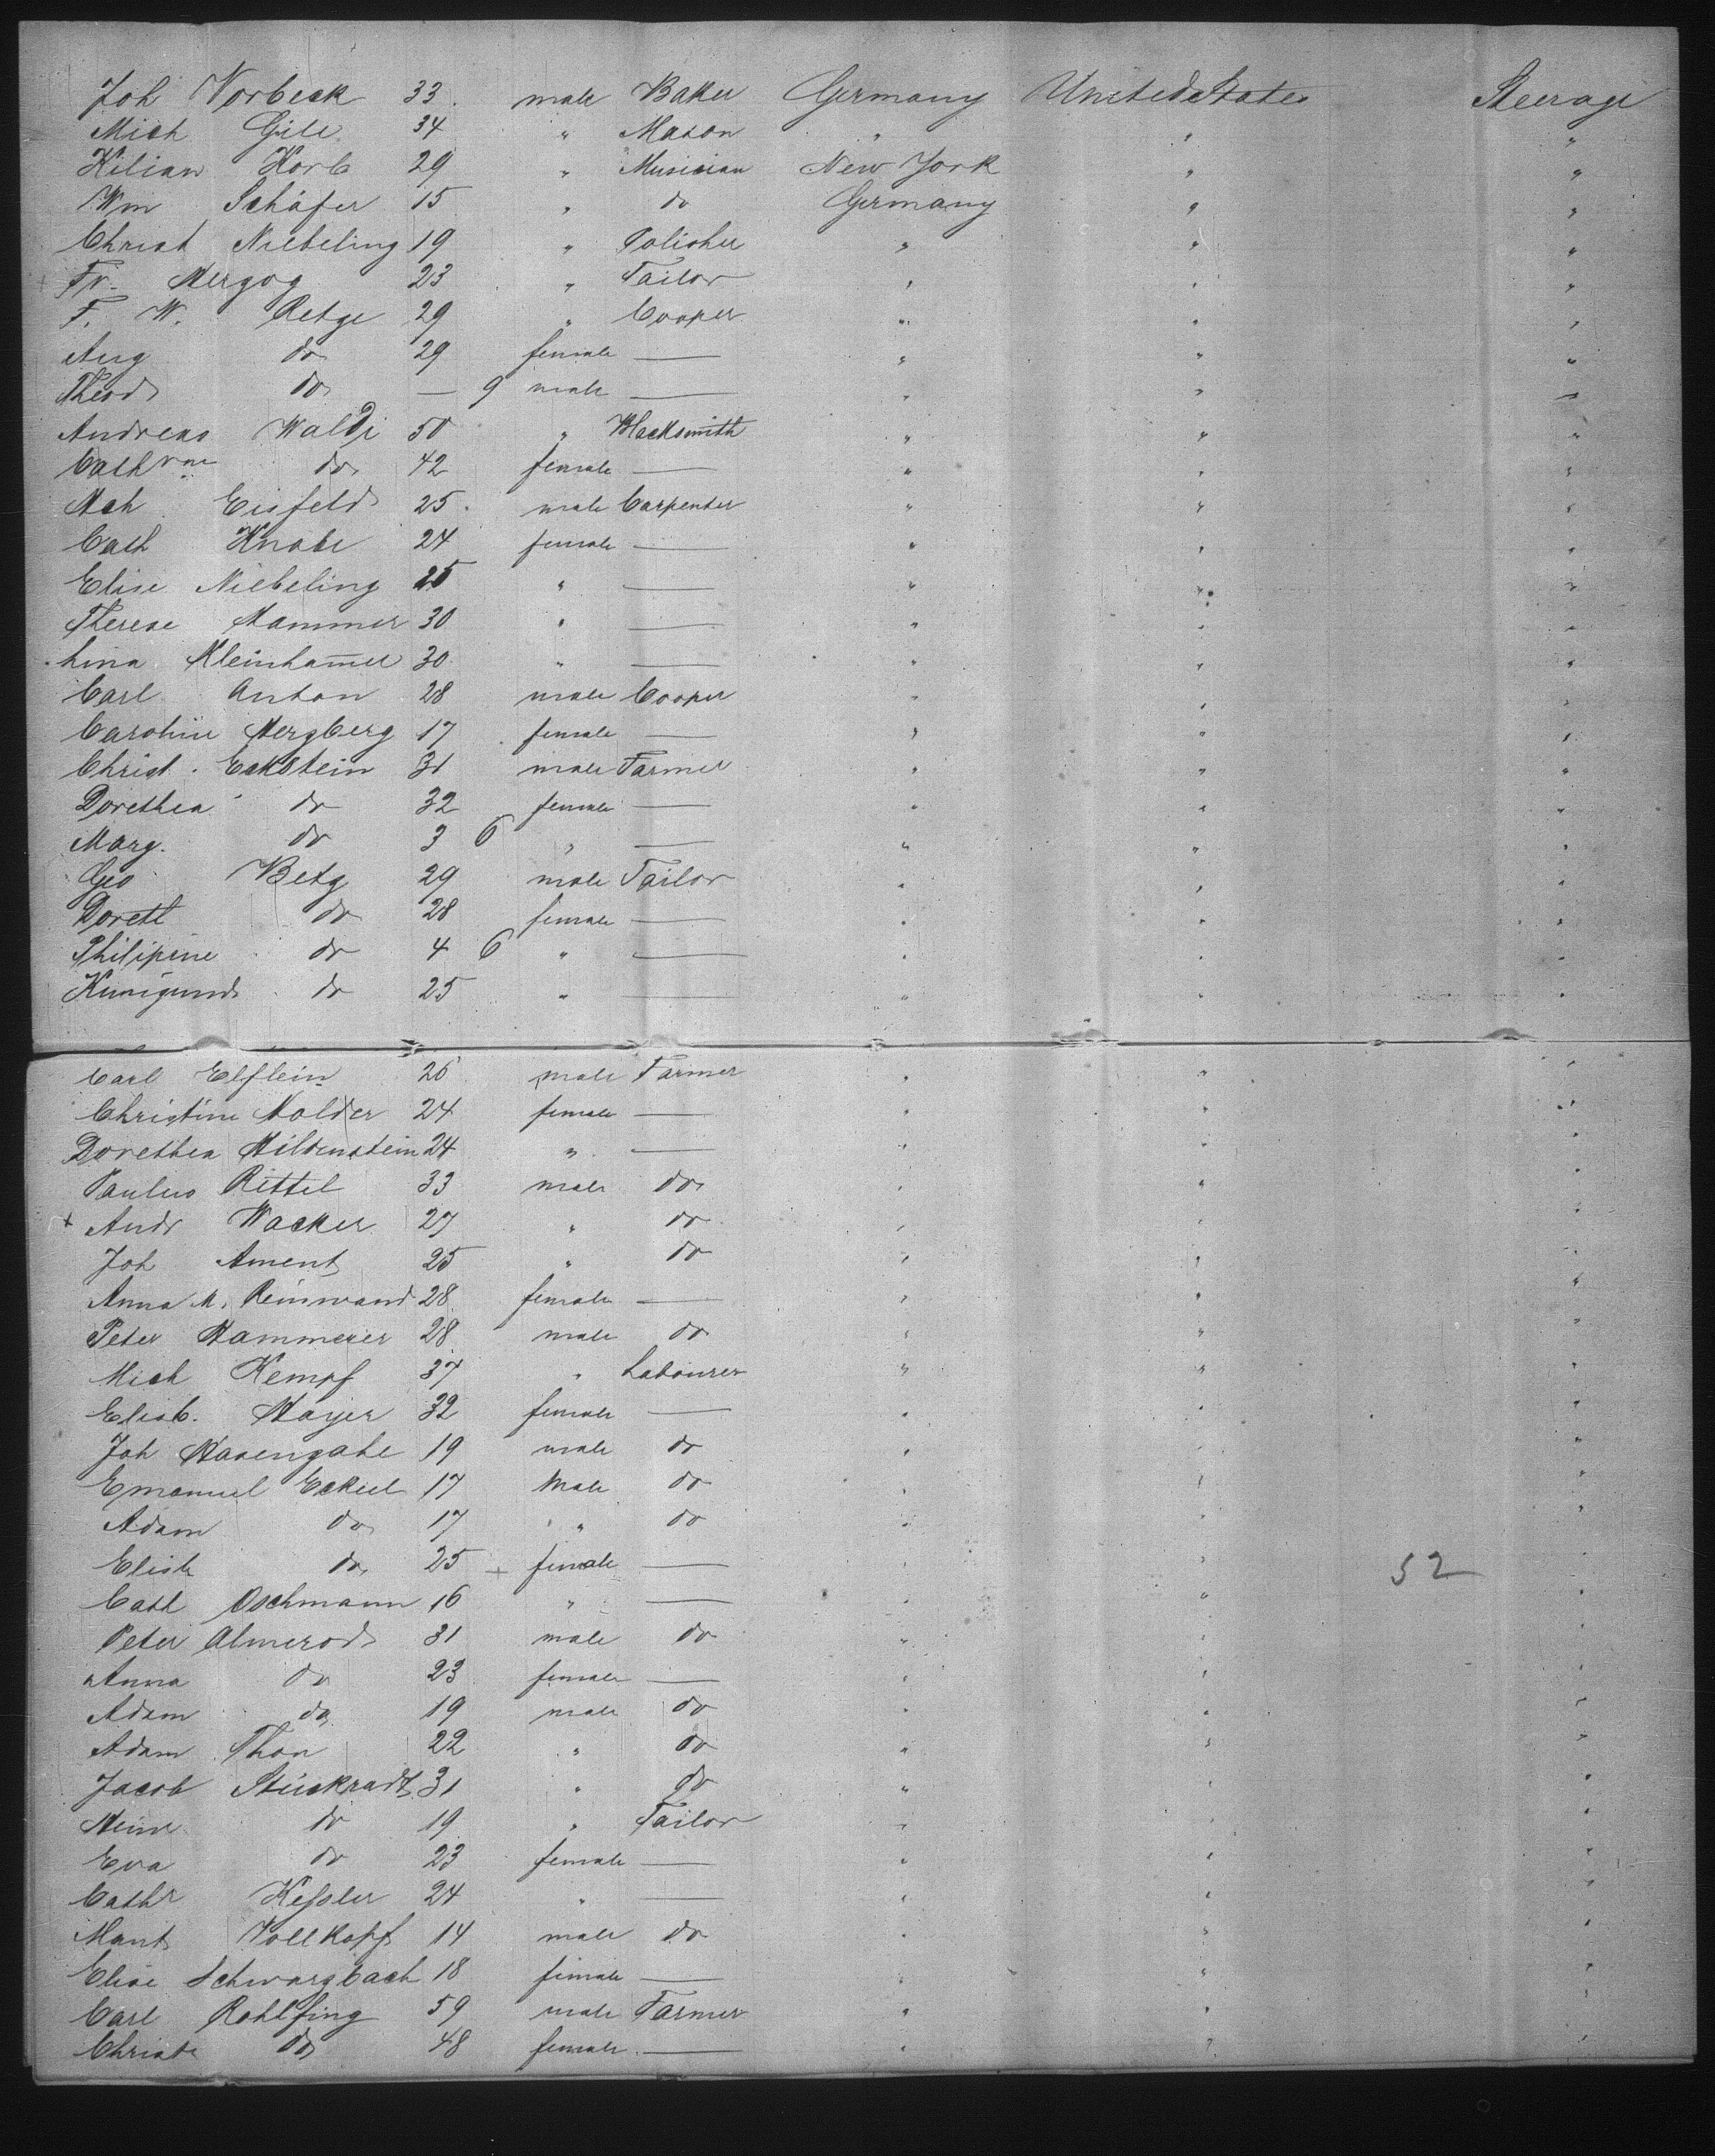 Joh Vorbeck 33 male Baker Germany United States Steerage
Mich Gile 34 " Mason " " "
Kilian Korb 29 " Musician New York " "
Wm Schäfer 15 " do Germany " "
Christ Niebeling 19 " Polisher " " "
Fr. Herzog 23 " Tailor " " "
F. W. Retge 29 " Cooper " " "
Aug do 29 female — " " "
Theod do — 9 male — " " "
Andreas Waldi 50 " Blacksmith " " "
Cathrne do 42 female — " " "
Hch Eisfeld 25 male Carpenter " " "
Cath Knabe 24 female — " " "
Elise Niebeling 25 " — " " "
Therese Hammer 30 " — " " "
Lina Kleinham̅er 30 " — " " "
Carl Anton 28 male Cooper " " "
Caroline Hergberg 17 female — " " "
Christ. Eckstein 31 male Farmer " " "
Dorethea do 32 female — " " "
Marg. do 3 6 " — " " "
Geo Betz 29 male Tailor " " "
Doreth do 28 female — " " "
Philipine do 4 6 " — " " "
Kunigund do 25 " — " " "
Carl Elflein 26 male Farmer " " "
Christine Nolder 24 female — " " "
Dorethea Hildenstein 24 " — " " "
Paulus Rittel 33 male do " " "
+ Andr Wacker 27 " do " " "
Joh Ament 25 " do " " "
Anna M. Reinwand 28 female — " " "
Peter Hammerer 28 male do " " "
Mich Kempf 37 " Labourer " " "
Elisb. Hayer 32 female — " " "
Joh Hasengabe 19 male do " " "
Emanuel Eckel 17 Male do " " "
Adam do 17 " do " " "
Elisb do 25 + female — " " 52 "
Cath Oschmann 16 " — " " "
Peter Almerod 31 male do " " "
Anna do 23 female — " " "
Adam do 19 male do " " "
Adam Thon 22 " do " " "
Jacob Stückradt 31 " do " " "
Heinr do 19 " Tailor " " "
Eva do 23 female — " " "
Cathr Keſsler 24 " — " " "
Vollkopf 14 male do " " "
Elise Schwarzbach 18 female — " " "
Carl Rohlfing 59 male Farmer " " "
Christe do 48 female — " " "